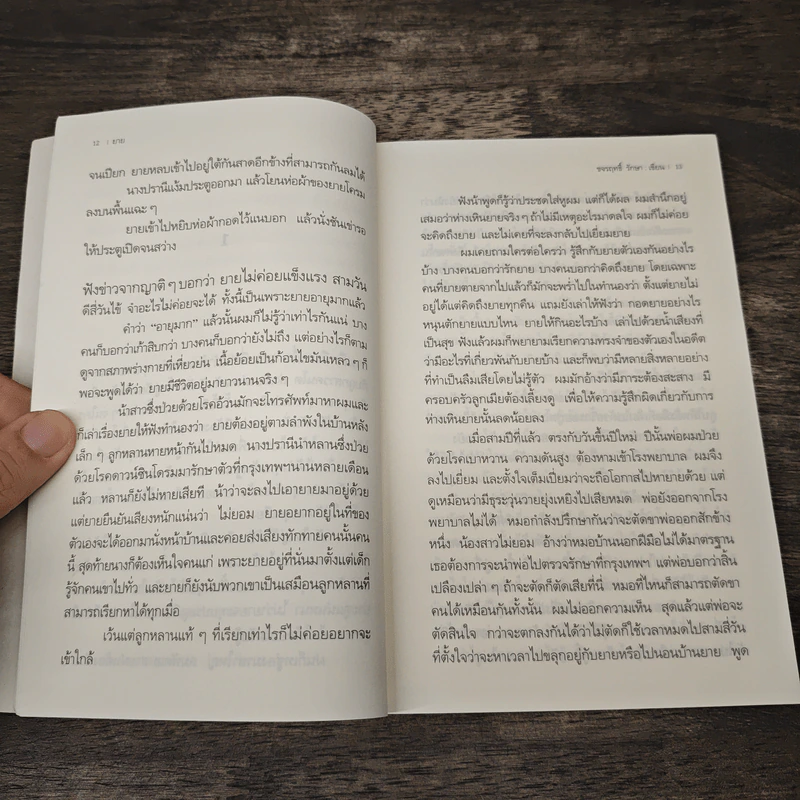 12 | ยาย
จนเปียก ยายหลบเข้าไปอยู่ใต้กันสาดอีกข้างที่สามารถกันลมได้
นางปรานีแง้มประตูออกมา แล้วโยนห่อผ้าของยายโครม
ลงบนพื้นแฉะ ๆ
ยายเข้าไปหยิบห่อผ้ากอดไว้แนบอก แล้วนั่งชันเข่ารอ
ให้ประตูเปิดจนสว่าง
ฟังข่าวจากญาติ ๆ บอกว่า ยายไม่ค่อยแข็งแรง สามวัน
ดีสี่วันไข้ จำอะไรไม่ค่อยจะได้ ทั้งนี้เป็นเพราะยายอายุมากแล้ว
คำว่า “อายุมาก” แล้วนั้นผมก็ไม่รู้ว่าเท่าไรกันแน่ บาง
คนก็บอกว่าเก้าสิบกว่า บางคนก็บอกว่ายังไม่ถึง แต่อย่างไรก็ตาม
ดูจากสภาพร่างกายที่เหี่ยวย่น เนื้อย้อยเป็นก้อนไขมันเหลว ๆ ก็
พอจะพูดได้ว่า ยายมีชีวิตอยู่มายาวนานจริง ๆ
น้าสาวซึ่งป่วยด้วยโรคอ้วนมักจะโทรศัพท์มาหาผมและ
ก็เล่าเรื่องยายให้ฟังทำนองว่า ยายต้องอยู่ตามลำพังในบ้านหลัง
เล็ก ๆ ลูกหลานหายหน้ากันไปหมด นางปรานีนำหลานซึ่งป่วย
ด้วยโรคดาวน์ซินโดรมมารักษาตัวที่กรุงเทพฯนานหลายเดือน
แล้ว หลานก็ยังไม่หายเสียที น้าว่าจะลงไปเอายายมาอยู่ด้วย
แต่ยายยืนยันเสียงหนักแน่นว่า ไม่ยอม ยายอยากอยู่ในที่ของ
ตัวเองจะได้ออกมานั่งหน้าบ้านและคอยส่งเสียงทักทายคนนั้นคน
นี้ สุดท้ายนางก็ต้องเห็นใจคนแก่ เพราะยายอยู่ที่นั่นมาตั้งแต่เด็ก
รู้จักคนเขาไปทั่ว และยายก็ยังนับพวกเขาเป็นเสมือนลูกหลานที่
สามารถเรียกหาได้ทุกเมื่อ
เว้นแต่ลูกหลานแท้ ๆ ที่เรียกเท่าไรก็ไม่ค่อยอยากจะ
เข้าใกล้
ขจรฤทธิ์ รักษา : เขียน | 13
ฟังน้าพูดก็รู้ว่าประชดใส่หูผม แต่ก็ได้ผล ผมสำนึกอยู่
เสมอว่าห่างเหินยายจริงๆ ถ้าไม่มีเหตุอะไรมาดลใจ ผมก็ไม่ค่อย
จะคิดถึงยาย และไม่เคยที่จะลงกลับไปเยี่ยมยาย
ผมเคยถามใครต่อใครว่า รู้สึกกับยายตัวเองกันอย่างไร
บ้าง บางคนบอกว่ารักยาย บางคนบอกว่าคิดถึงยาย โดยเฉพาะ
คนที่ยายตายจากไปแล้วก็มักจะพร่ำไปในทำนองว่า ตั้งแต่ยายไม่
อยู่ได้แต่คิดถึงยายทุกคืน แถมยังเล่าให้ฟังว่า กอดยายอย่างไร
หนุนตักยายแบบไหน ยายให้กินอะไรบ้าง เล่าไปด้วยน้ำเสียงที่
เป็นสุข ฟังแล้วผมก็พยายามเรียกความทรงจำของตัวเองในอดีต
ว่ามีอะไรที่เกี่ยวพันกับยายบ้าง และก็พบว่ามีหลายสิ่งหลายอย่าง
ที่ทำเป็นลืมเสียโดยไม่รู้ตัว ผมมักอ้างว่ามีภาระต้องสะสาง มี
ครอบครัวลูกเมียต้องเลี้ยงดู เพื่อให้ความรู้สึกผิดเกี่ยวกับการ
ห่างเหินยายนั้นลดน้อยลง
เมื่อสามปีที่แล้ว ตรงกับวันขึ้นปีใหม่ ปีนั้นพ่อผมป่วย
ด้วยโรคเบาหวาน ความดันสูง ต้องหามเข้าโรงพยาบาล ผมจึง
ลงไปเยี่ยม และตั้งใจเต็มเปี่ยมว่าจะถือโอกาสไปหายายด้วย แต่
ดูเหมือนว่ามีธุระวุ่นวายยุ่งเหยิงไปเสียหมด พ่อยังออกจากโรง
พยาบาลไม่ได้ หมอกำลังปรึกษากันว่าจะตัดขาพ่อออกสักข้าง
หนึ่ง น้องสาวไม่ยอม อ้างว่าหมอบ้านนอกฝีมือไม่ได้มาตรฐาน
เธอต้องการจะนำพ่อไปตรวจรักษาที่กรุงเทพฯ แต่พ่อบอกว่าสิ้น
เปลืองเปล่า ๆ ถ้าจะตัดก็ตัดเสียที่นี่ หมอที่ไหนก็สามารถตัดขา
คนได้เหมือนกันทั้งนั้น ผมไม่ออกความเห็น สุดแล้วแต่พ่อจะ
ตัดสินใจ กว่าจะตกลงกันได้ว่าไม่ตัดก็ใช้เวลาหมดไปสามสี่วัน
ที่ตั้งใจว่าจะหาเวลาไปขลุกอยู่กับยายหรือไปนอนบ้านยาย พูด